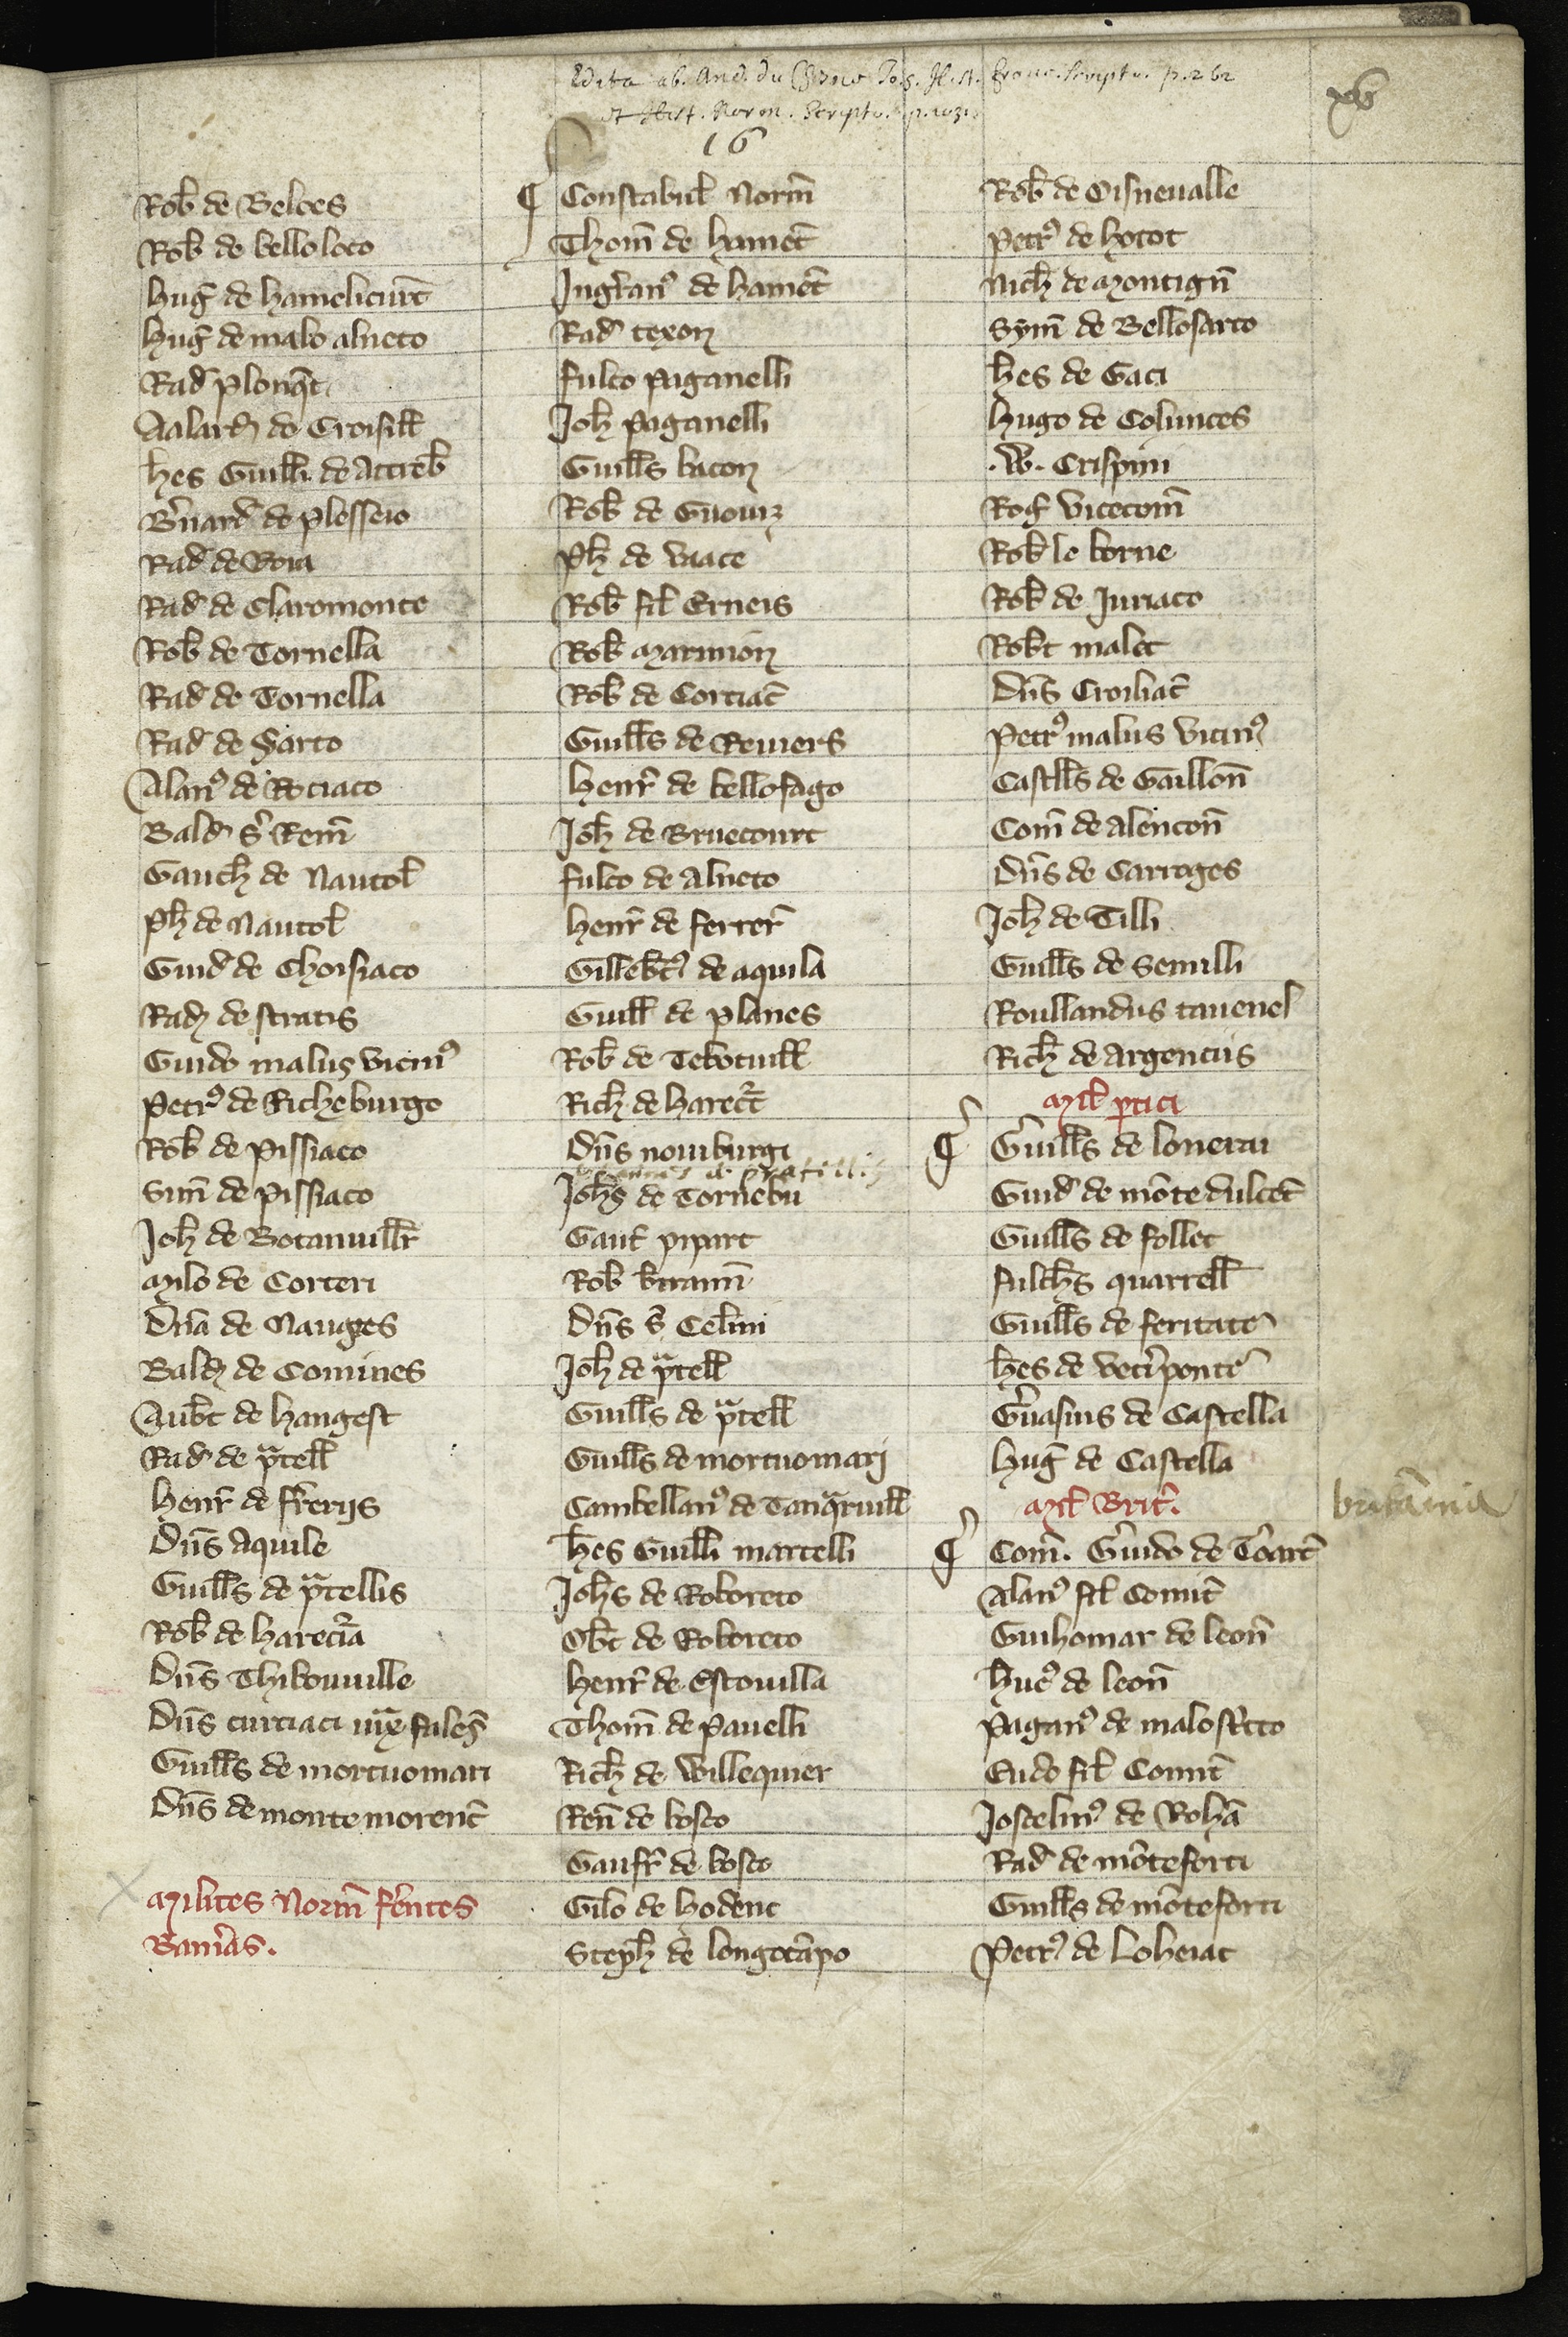 Edita ab. And. du Chesne To. 5. Hist. Franc. Scripto. p. 262
et Hist. Norm. Scripto. p. 1031
xv
16
Rob̄ de Beloes
Rob̄ de bello loco
hug̃ de hamelicurt̄
hug̃ de malo alneto
Rad̄ plonq̄t
Aalard̃ de Croisill̄
h̄es Guill̄i de Attreb̄
B̃nard̄ de plesseio
Rad̄ de Roia
Rad̄ de Claromonte
Rob̄ de Tornella
Rad̄ de Tornella
Rad̄ de Sarto
Alanꝰ de Rociaco
Bald̃ s̃ Rem̄
Gauch̄ de Nantol̄
ph̄ de Nantol̄
Guid̄ de Choisiaco
Rad̃ de stratis
Guido malus vicinꝰ
Petrꝰ de Richeburgo
Rob̄ de pissiaco
Sim̄ de pissiaco
Joh̄ de Botanuill̄r
Milo de Corteri
Dn̄a de Nanges
Bald̃ de Comines
Aub̄t de hangest
Rad̄ de p̃tell̄
henr̃ de fr̃erijs
Dn̄s Aquile
Guill̄s de p̃tellis
Rob̄ de harec̃ia
Dn̄s Thibouuille
Dn̄s curciaci iux̃ fales̃
Guill̄s de mortuomari
Dn̄s de monte morenc̄
Milites Norm̄ fer̃ntes
Banr̃as.
¶ Constabul̄ Norm̄
Thom̄ de humet̄
Ingr̃anꝰ de hamet̄
Rad̄ texon
fulco paganelli
Joh̄ paganelli
Guill̄s bacon
Rob̄ de Guouiz
Ph̄ de vaace
Rob̄ fil̄ Erneis
Rob̄ Marmion
Rob̄ de Corciac̄
Guill̄s de Reuiers
henr̃ de bellofago
Joh̄ de Bruecourt
fulco de Alneto
henr̃ de ferrer̃
Gilleb̄tꝰ de aquila
Guill̄ de planes
Rob̄ de Tebotuill̄
Rich̄ de harec̃t
Dn̄s nouiburgi
de pratellis
Joh̄s de Tornebu
Gaut̄ pipart
Rob̄ b̃tram̄
Dn̄s s̃ Celrini
Joh̄ de p̃tell̄
Guill̄s de p̃tell̄
Guill̄s de mortuomarj
Cambellanꝰ de Tanq̃ruill̄
h̄es Guill̄i martelli
Joh̄s de Roboreto
Ob̄t de Roboreto
henr̃ de Estouilla
Thom̄ de pauelli
Rich̄ de Willequier
Ren̄ de bosco
Gaufr̃ de bosco
Gilo de hodenc
Steph̄ de longocãpo
Rob̄ de Oisneualle
Petrꝰ de hotot
Nich̄ de Montign̄
Sym̄ de Bellosarto
h̄es de Gaci
hugo de Colunces
.W. Crispini
Rog̃ vicecom̄
Rob̄ le borne
Rob̄ de Iuriaco
Rob̄t malet
Dn̄s Croiliac̄
Petrꝰ malus vicinꝰ
Castll̄s de Gaillon̄
Com̄ de Alencon̄
Dn̄s de Carroges
Joh̄ de Tilli
Guill̄s de Semilli
Roullandus tauenel
Rich̄ de Argenciis
Mil̄ p̱tici
¶ Guill̄s de lonerai
Guid̄ de mõte dulcet̄
Guill̄s de follet
fulch̄s quarrell̄
Guill̄s de feritate
h̄es de vet̃iponte
G̃uasius de Castella
hug̃ de Castella
Mil̄ Brit̃.
britãnia
¶ Com̄. Guido de Toarc̄
Alanꝰ fil̄ Comit̄
Guihomar de leon̄
hueꝰ de leon̄
Paganꝰ de malost̃cto
Eudo fil̄ Comit̄
Joscelinꝰ de Rohã
Rad̄ de mõteforti
Guill̄s de mõteforti
Petrꝰ de Loheiac